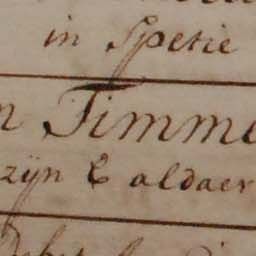 in Spetie
n Timme
zijn & aldaer